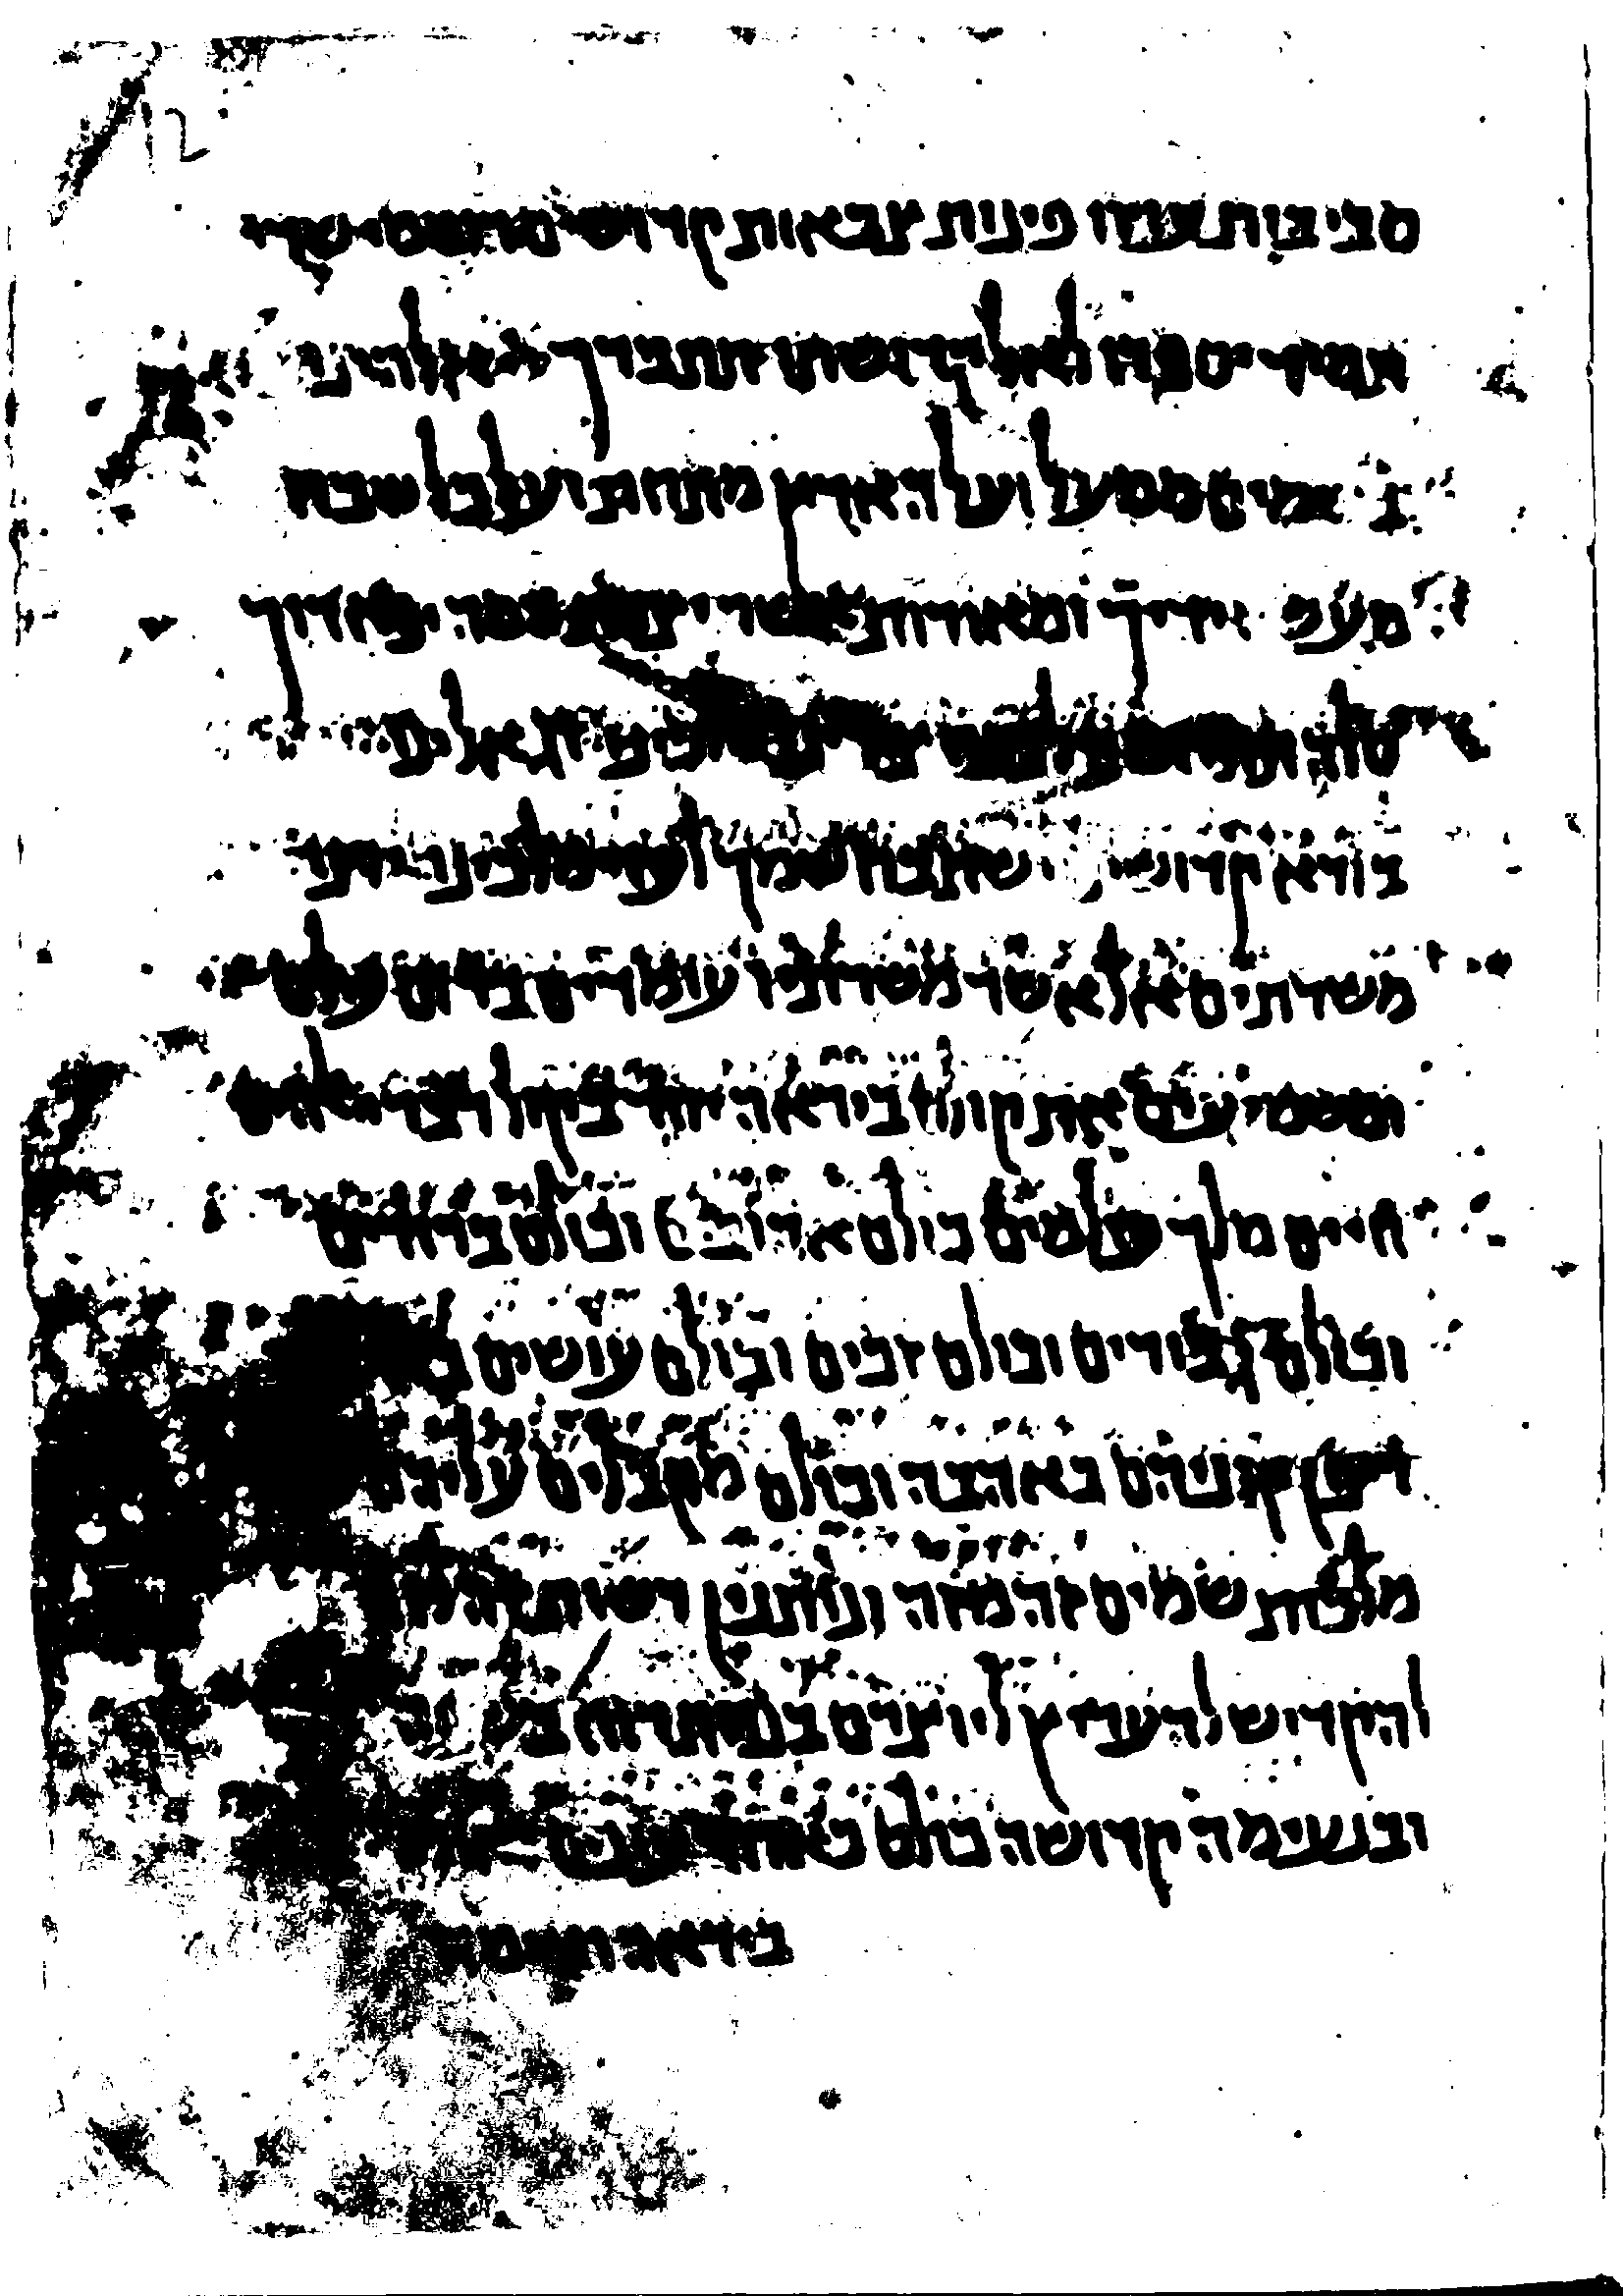 12
סביבות עוזו פינות צבאות קדושים רוממי שדי
תמיד יספרו לאל קדושתו תתברך יי אלהינו
בשמים ממעל ועל הארץ מתחת ועל כל שבח
מעשי ידיך ומאורות אשר יצרת המה יפארוך
סלה
בורא קדושים ישתבח שמך לעד מלכינו יוצר
משרתים אל אשר משרתיו עומדים ברום עולם
ומשמיעים את קולו ביראה יחד בקול דברי אלהים
חיים מלך עולמים כולם אהובים וכולם ברורים
וכולם גבורים וכולם זכים וכולם עושים
רצון קוניהם באהבה וכולם מקבלים עליהם
מלכות שמים זה מזה ונותנין רשות זה
להקדיש להעריץ ליוצרם בנחת רוח
ובנעימה קדושה כולם כאחד עונים
ביראה